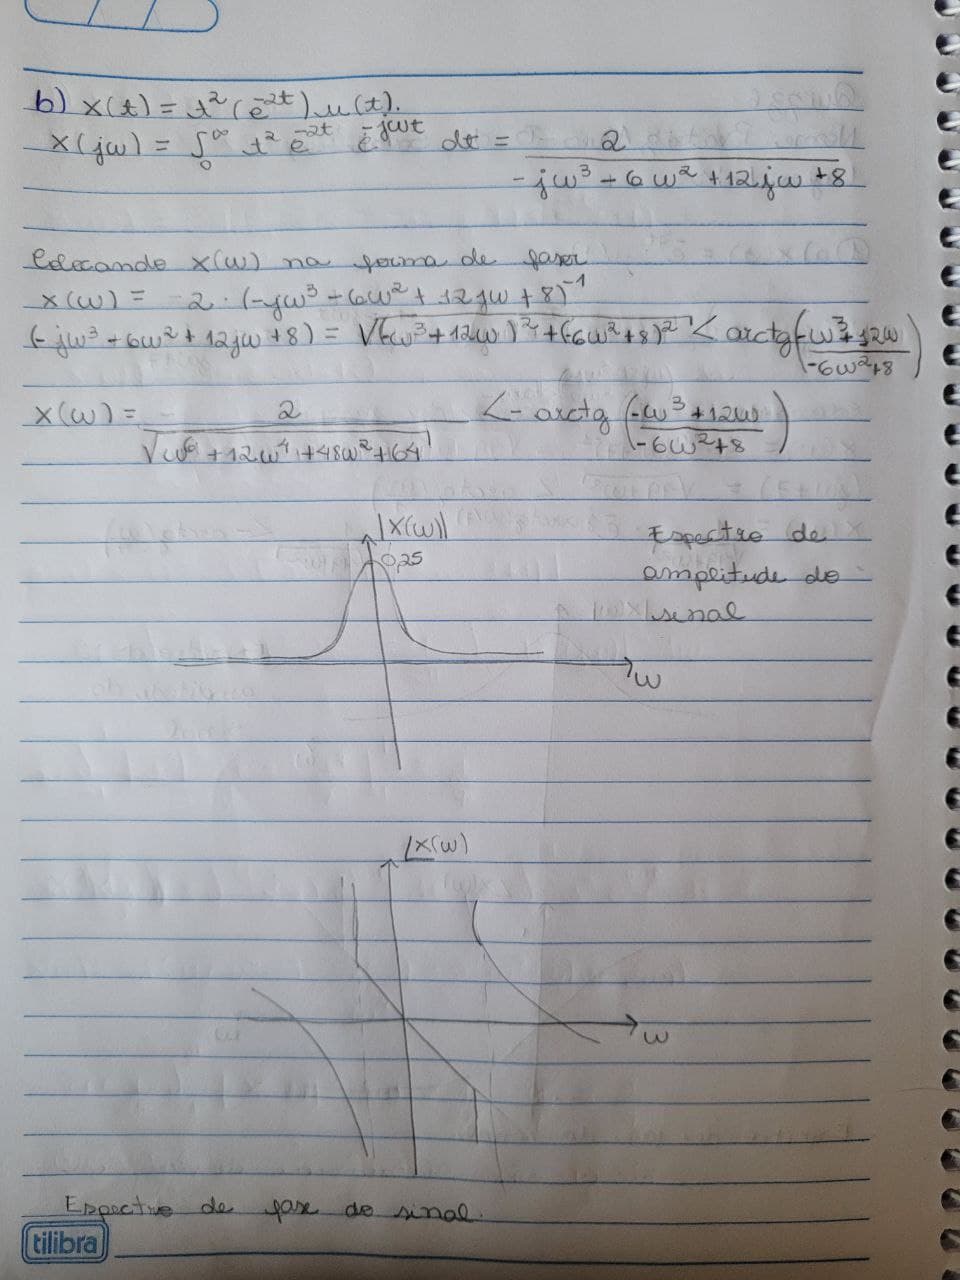 b) x(t) = t² (e^-2t) u(t).
X(jω) = ∫₀^∞ t² e^-2t e^-jωt dt = 2 / (-jω³ - 6ω² + 12jω + 8)
Colocando X(ω) na forma de fasor
X(ω) = 2 · (-jω³ - 6ω² + 12jω + 8)^-1
(-jω³ - 6ω² + 12jω + 8) = √((-ω³ + 12ω)² + (-6ω² + 8)²) < arctg((-ω³ + 12ω) / (-6ω² + 8))
X(ω) = 2 / √(ω⁶ + 12ω⁴ + 48ω² + 64) < - arctg ((-ω³ + 12ω) / (-6ω² + 8))
|X(ω)|
0,25
ω
Espectro de
amplitude do
sinal
∠X(ω)
ω
Espectro de fase do sinal.
tilibra